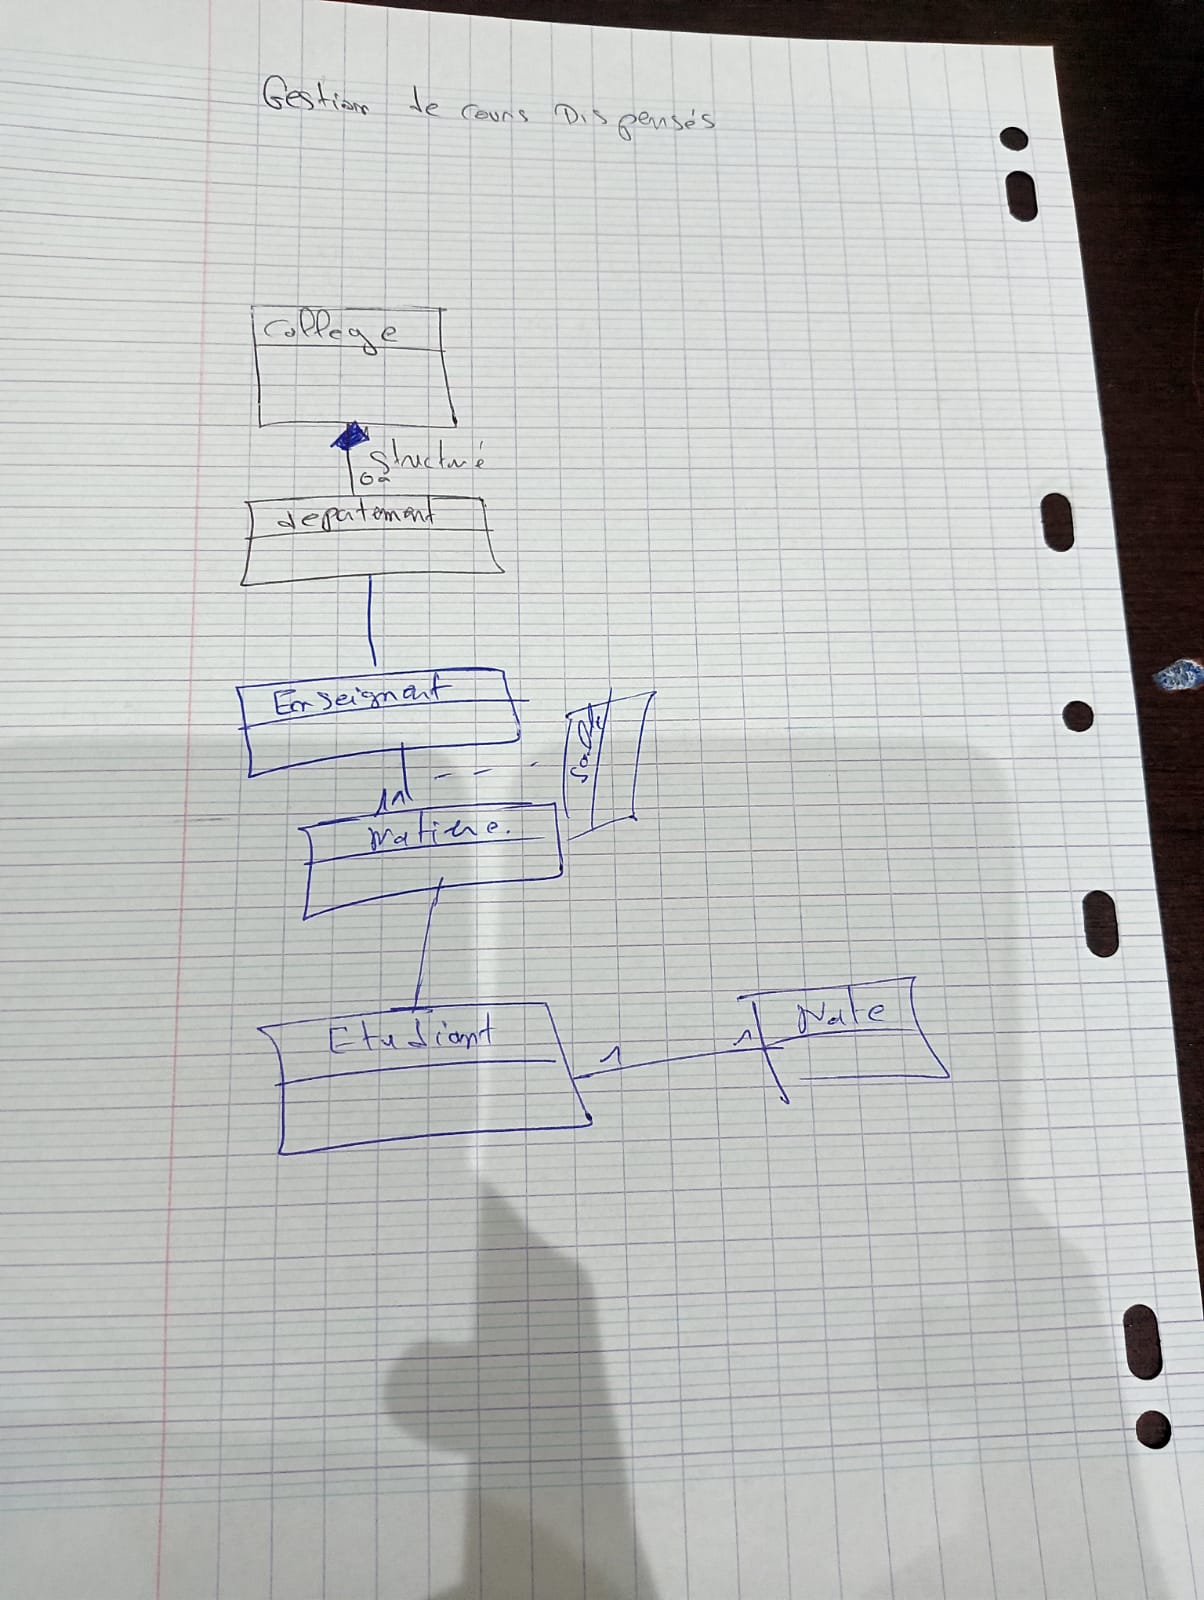 Gestion de cours Dispensés
College
Structuré
departement
Enseignant
Salle
11
Matiere.
Etudiant
1
1
Note